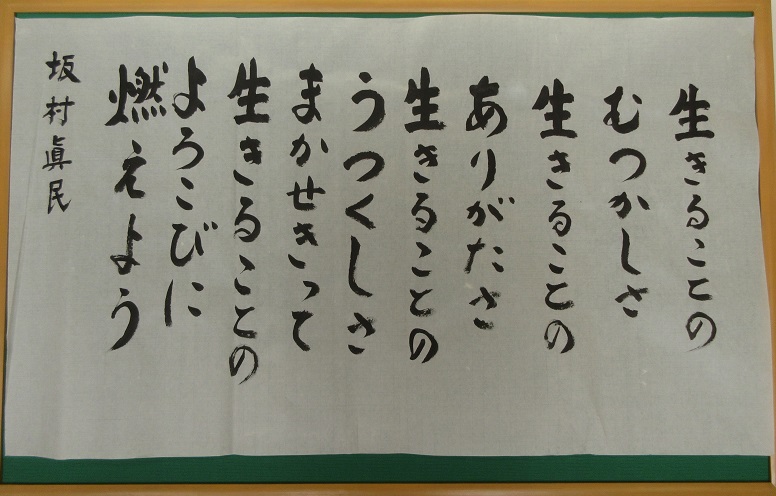 生きることの
むつかしさ
生きることの
ありがたさ
生きることの
うつくしさ
まかせきって
生きることの
よろこびに
燃えよう
坂村眞民